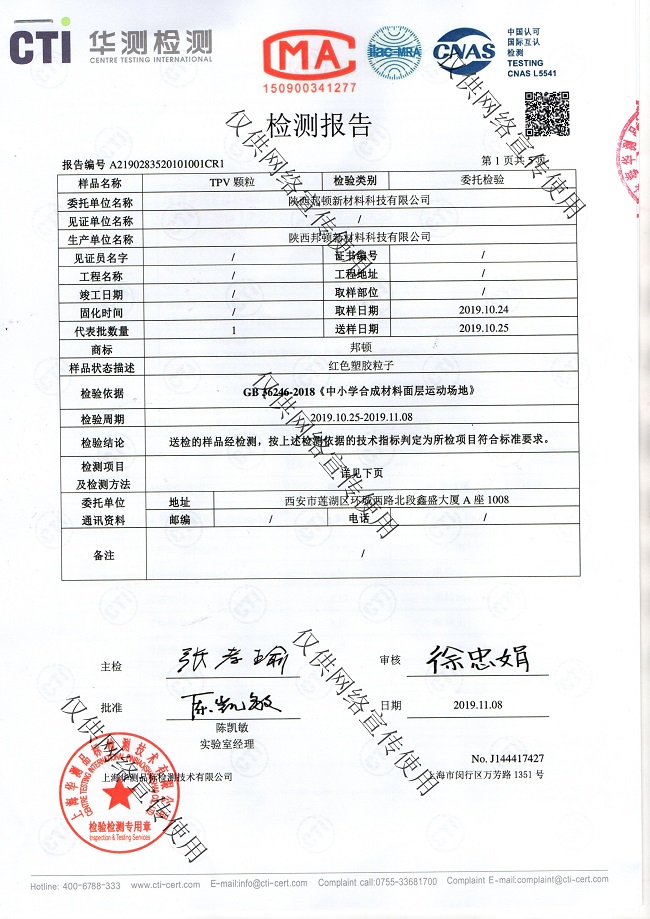 CTI 华测检测
CENTRE TESTING INTERNATIONAL
MA
150900341277
ilac-MRA
CNAS
中国认可
国际互认
检测
TESTING
CNAS L5541
检测报告
报告编号 A2190283520101001CR1
第 1 页共 5 页
样品名称 TPV 颗粒 检验类别 委托检验
委托单位名称 陕西邦顿新材料科技有限公司
见证单位名称 /
生产单位名称 陕西邦顿新材料科技有限公司
见证员名字 / 证书编号 /
工程名称 / 工程地址 /
竣工日期 / 取样部位 /
固化时间 / 取样日期 2019.10.24
代表批数量 1 送样日期 2019.10.25
商标 邦顿
样品状态描述 红色塑胶粒子
检验依据 GB 36246-2018《中小学合成材料面层运动场地》
检验周期 2019.10.25-2019.11.08
检验结论 送检的样品经检测，按上述检测依据的技术指标判定为所检项目符合标准要求。
检测项目
及检测方法 详见下页
委托单位 地址 西安市莲湖区环城西路北段鑫盛大厦 A 座 1008
通讯资料 邮编 / 电话 /
备注 /
主检 张孝瑜 审核 徐忠娟
批准 陈凯敏 日期 2019.11.08
陈凯敏
实验室经理
No. J144417427
上海华测品标检测技术有限公司 上海市闵行区万芳路 1351 号
上海华测品标检测技术有限公司
检验检测专用章
Inspection & Testing Services
仅供网络宣传使用
仅供网络宣传使用
仅供网络宣传使用
仅供网络宣传使用
仅供网络宣传使用
Hotline: 400-6788-333 www.cti-cert.com E-mail:info@cti-cert.com Complaint call:0755-33681700 Complaint E-mail:complaint@cti-cert.com